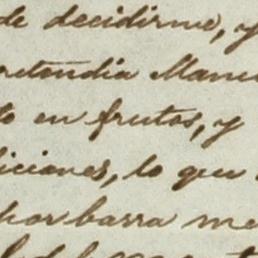 de decidirme, y
retendia Manu
to en frutos, y
iciones, lo que
por barra me